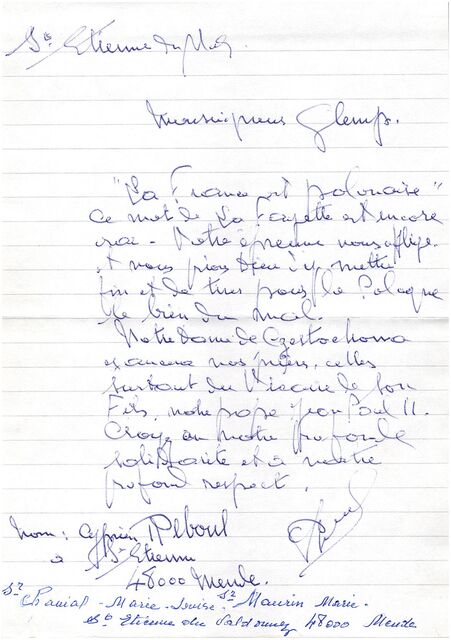 St Etienne du
Monseigneur Glemp.
"La France est polonaise"
ce mot de La Fayette est encore
vrai - Votre épreuve nous afflige.
et nous prions Dieu d'y mettre
fin et de tirer pour la Pologne
le bien du mal.
Notre Dame de Czestochowa
exaucera nos prières, celles
surtout du Vicaire de Son
Fils, notre pape Jean Paul II.
Croyez en notre profonde
solidarité et à notre
profond respect.
Nom: Cyprien Reboul
à St Etienne
48000 Mende.
Sr Chanial - Marie-Louise - Sr Maurin Marie -
St Etienne du Valdonnez 48000 Mende